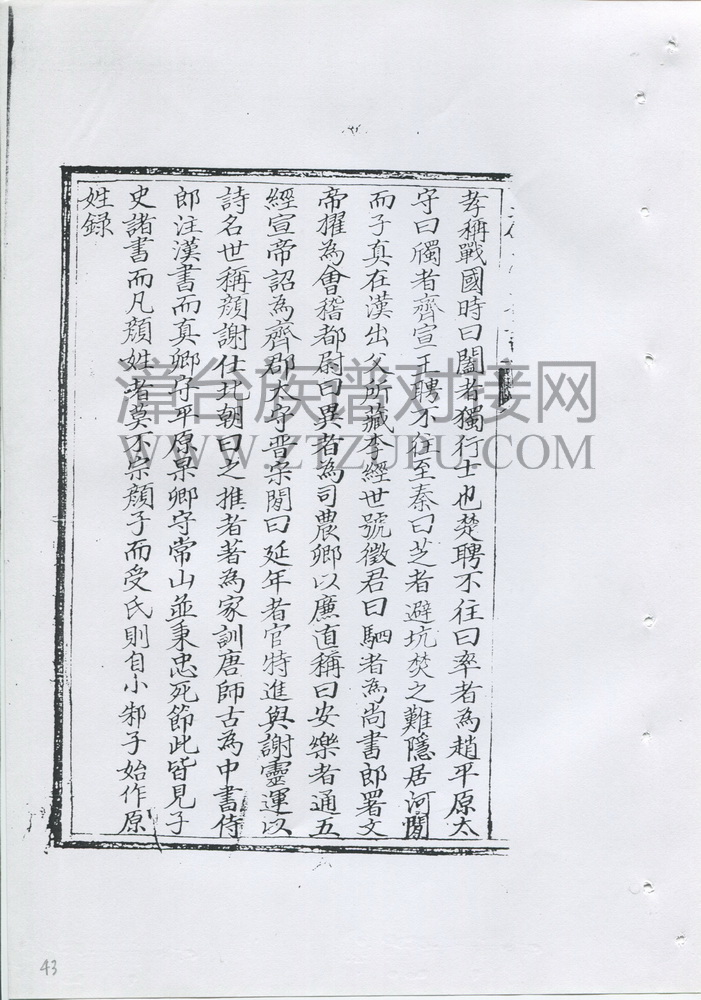 孝稱戰國時曰闔者獨行士也楚聘不往曰率者為趙平原太
守曰斶者齊宣王聘不往至秦曰芝者避坑焚之難隱居河閒
而子真在漢出父所藏孝經世號徵君曰駟者為尚書郎署文
帝擢為會稽都尉曰異者為司農卿以廉直稱曰安樂者通五
經宣帝詔為齊郡太守晋宋閒曰延年者官特進與謝靈運以
詩名世稱顔謝仕北朝曰之推者著為家訓唐師古為中書侍
郎注漢書而真卿守平原杲卿守常山並秉忠死節此皆見于
史諸書而凡顔姓者莫不宗顔子而受氏則自小邾子始作原
姓録
漳台族谱对接网
WWW.ZTZUPU.COM
43